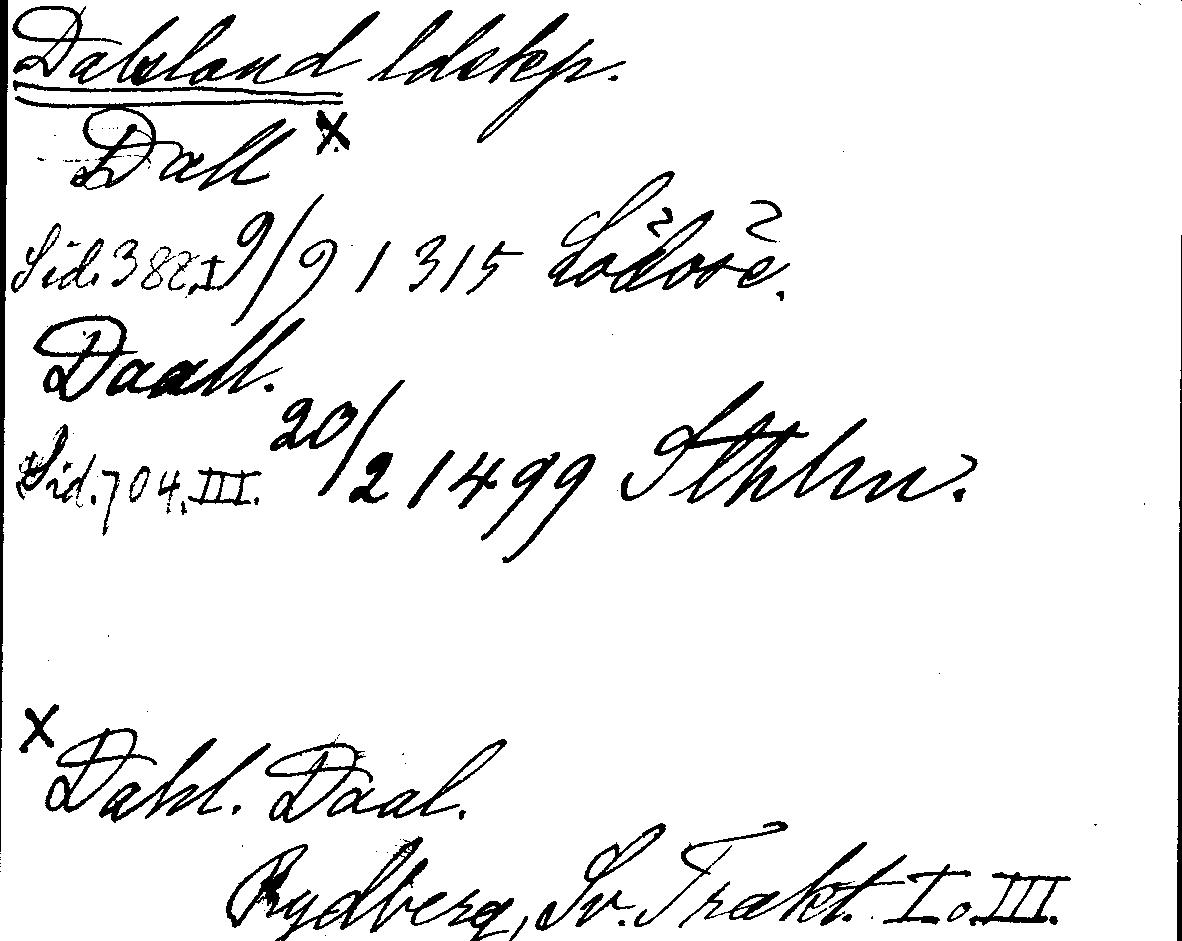 Dalsland ldskp.
Dall x
Sid. 388. I 9/9 1315 Lödöse.
Daall.
Sid. 704. III. 20/2 1499 Sthlm.
x Dahl. Daal.
Rydberg, Sv. Trakt. I o. III.